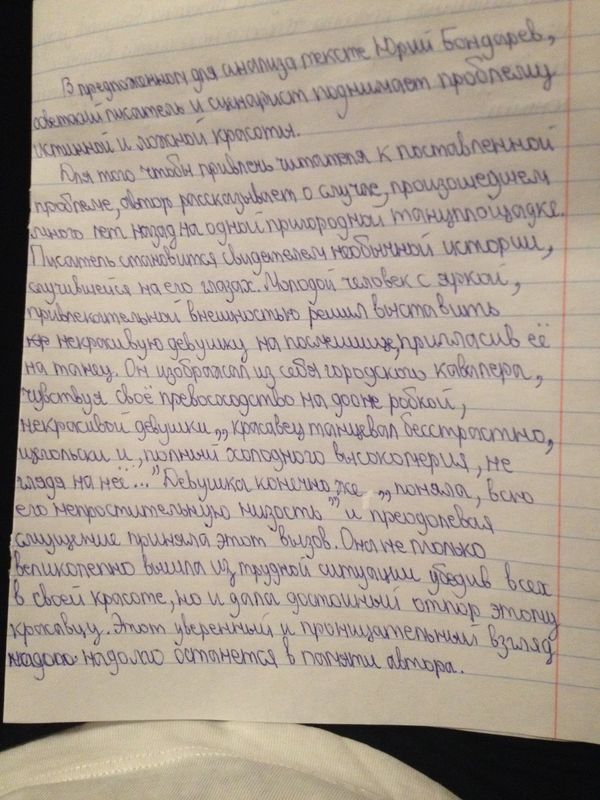 В предложенном для анализа тексте Юрий Бондарев,
советский писатель и сценарист поднимает проблему
истинной и ложной красоты.
Для того чтобы привлечь читателя к поставленной
проблеме, автор рассказывает о случае, произошедшем
много лет назад на одной пригородной танцплощадке.
Писатель становится свидетелем необычной истории,
случившейся на его глазах. Молодой человек с яркой,
привлекательной внешностью решил выставить
некрасивую девушку на посмешище, пригласив её
на танец. Он изображал из себя городского кавалера,
чувствуя своё превосходство на фоне робкой,
некрасивой девушки „красавец танцевал бесстрастно,
щегольски и, полный холодного высокомерия, не
глядя на неё..." Девушка конечно же „поняла, всю
его непростительную низость" и преодолевая
смущение приняла этот вызов. Она не только
великолепно вышла из трудной ситуации убедив всех
в своей красоте, но и дала достойный отпор этому
красавцу. Этот уверенный и проницательный взгляд
надолго останется в памяти автора.